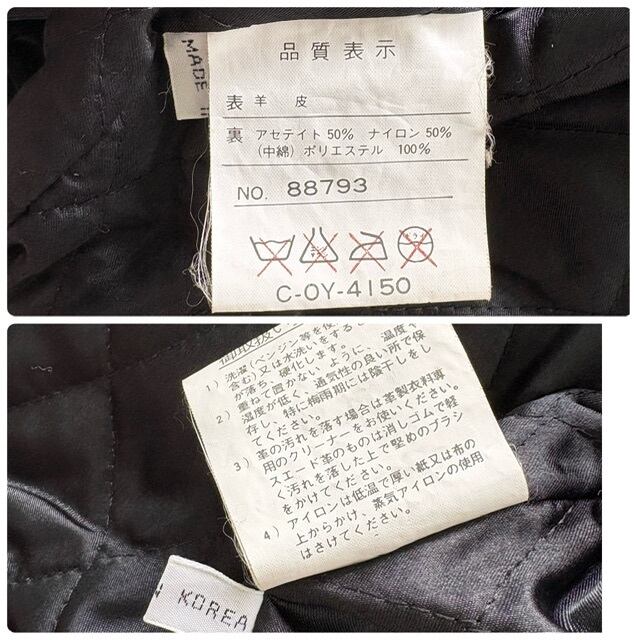 MADE I
品質表示
表 羊 皮
裏 アセテイト50% ナイロン50%
(中綿) ポリエステル 100%
NO. 88793
C-OY-4150
1) 洗濯(ベンジン等を使
含む)又は水洗いをする
が落ち、硬化します。
2) 重ねて置かないように、温度や
湿度が低く、通気性の良い所で保
存し、特に梅雨期には陰干しをし
てください。
3) 革の汚れを落す場合は革製衣料専
用のクリーナーをお使いください。
スエード革のものは消しゴムで軽
く汚れを落した上で堅めのブラシ
をかけてください。
4) アイロンは低温で厚い紙又は布の
上からかけ、蒸気アイロンの使用
はさけてください。
N KOREA